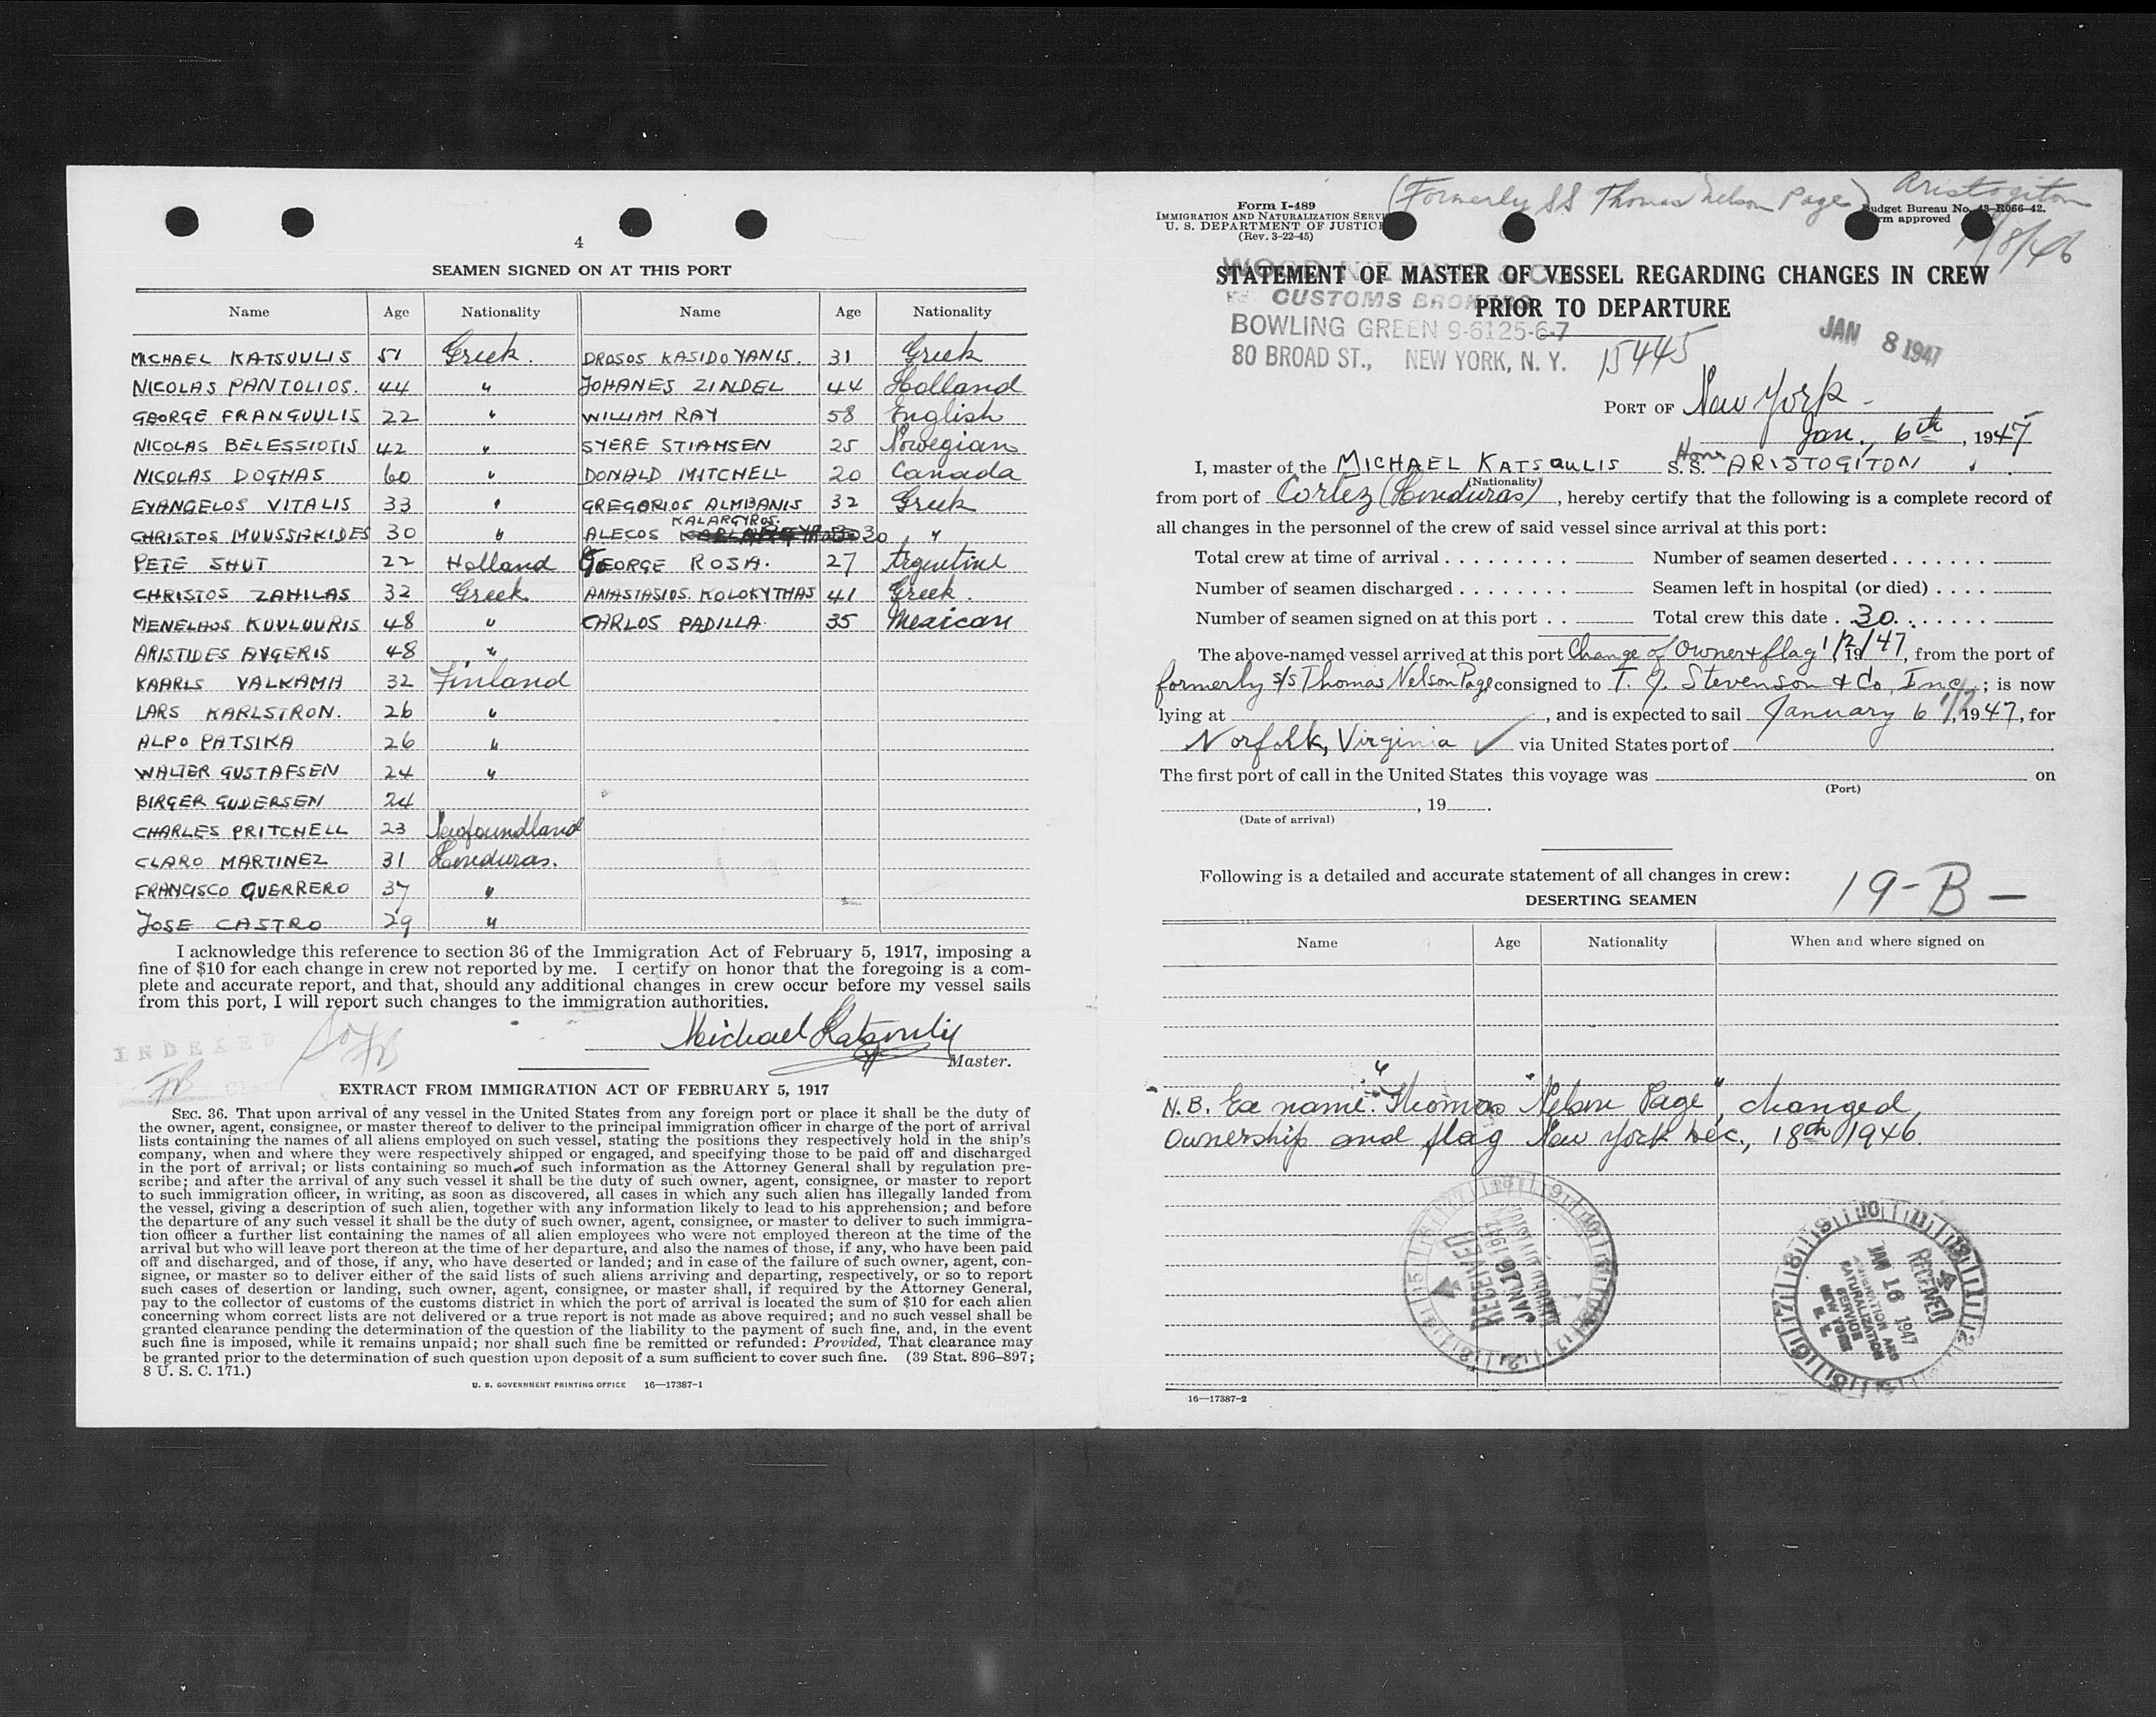 4
SEAMEN SIGNED ON AT THIS PORT
Name Age Nationality Name Age Nationality
MICHAEL KATSUULIS 51 Greek. DROSOS KASIDOYANIS. 31 Greek
NICOLAS PANTOLIOS. 44 " JOHANES ZINDEL 44 Holland
GEORGE FRANGUULIS 22 " WILLIAM RAY 58 English
NICOLAS BELESSIOTIS 42 " SYERE STIAMSEN 25 Norwegian
NICOLAS DOGHAS 60 " DONALD MITCHELL 20 Canada
EVANGELOS VITALIS 33 " GREGORIOS ALMBANIS 32 Greek
CHRISTOS MUUSSAKIDES 30 " ALECOS KALARGYROS. 30 "
PETE SHUT 22 Holland GEORGE ROSA. 27 Argentine
CHRISTOS ZAHILAS 32 Greek ANASTASIOS. KOLOKYTHAS 41 Greek.
MENELAOS KUULUURIS 48 " CARLOS PADILLA. 35 Mexican
ARISTIDES AVGERIS 48 "
KAARLS VALKAMA 32 Finland
LARS KARLSTRON. 26 "
ALPO PATSIKA 26 "
WALTER GUSTAFSEN 24 "
BIRGER GUDERSEN 24
CHARLES PRITCHELL 23 Newfoundland
CLARO MARTINEZ 31 Honduras.
FRANCISCO GUERRERO 37 "
JOSE CASTRO 29 "
I acknowledge this reference to section 36 of the Immigration Act of February 5, 1917, imposing a
fine of $10 for each change in crew not reported by me. I certify on honor that the foregoing is a com-
plete and accurate report, and that, should any additional changes in crew occur before my vessel sails
from this port, I will report such changes to the immigration authorities.
Michael Katsoulis
Master.
INDEXED
EXTRACT FROM IMMIGRATION ACT OF FEBRUARY 5, 1917
SEC. 36. That upon arrival of any vessel in the United States from any foreign port or place it shall be the duty of
the owner, agent, consignee, or master thereof to deliver to the principal immigration officer in charge of the port of arrival
lists containing the names of all aliens employed on such vessel, stating the positions they respectively hold in the ship's
company, when and where they were respectively shipped or engaged, and specifying those to be paid off and discharged
in the port of arrival; or lists containing so much of such information as the Attorney General shall by regulation pre-
scribe; and after the arrival of any such vessel it shall be the duty of such owner, agent, consignee, or master to report
to such immigration officer, in writing, as soon as discovered, all cases in which any such alien has illegally landed from
the vessel, giving a description of such alien, together with any information likely to lead to his apprehension; and before
the departure of any such vessel it shall be the duty of such owner, agent, consignee, or master to deliver to such immigra-
tion officer a further list containing the names of all alien employees who were not employed thereon at the time of the
arrival but who will leave port thereon at the time of her departure, and also the names of those, if any, who have been paid
off and discharged, and of those, if any, who have deserted or landed; and in case of the failure of such owner, agent, con-
signee, or master so to deliver either of the said lists of such aliens arriving and departing, respectively, or so to report
such cases of desertion or landing, such owner, agent, consignee, or master shall, if required by the Attorney General,
pay to the collector of customs of the customs district in which the port of arrival is located the sum of $10 for each alien
concerning whom correct lists are not delivered or a true report is not made as above required; and no such vessel shall be
granted clearance pending the determination of the question of the liability to the payment of such fine, and, in the event
such fine is imposed, while it remains unpaid; nor shall such fine be remitted or refunded: Provided, That clearance may
be granted prior to the determination of such question upon deposit of a sum sufficient to cover such fine. (39 Stat. 896-897;
8 U. S. C. 171.)
U. S. GOVERNMENT PRINTING OFFICE 16—17387-1
(Formerly SS Thomas Nelson Page) Aristogiton
Form I-489
IMMIGRATION AND NATURALIZATION SERVI
U. S. DEPARTMENT OF JUSTICE
(Rev. 3-22-45)
Budget Bureau No. 43-R066-42.
rm approved
/8/46
STATEMENT OF MASTER OF VESSEL REGARDING CHANGES IN CREW
PRIOR TO DEPARTURE
CUSTOMS BROKERS
BOWLING GREEN 9-6125-6-7
80 BROAD ST., NEW YORK, N. Y.
15445
JAN 8 1947
PORT OF New York -
Jan., 6th, 1947
I, master of the MICHAEL KATSOULIS Hon S. S. ARISTOGITON
(Nationality)
from port of Cortez (Honduras), hereby certify that the following is a complete record of
all changes in the personnel of the crew of said vessel since arrival at this port:
Total crew at time of arrival Number of seamen deserted
Number of seamen discharged Seamen left in hospital (or died)
Number of seamen signed on at this port Total crew this date 30
The above-named vessel arrived at this port Change of Owner & flag 1/2/1947, from the port of
formerly S/S Thomas Nelson Page consigned to T. J. Stevenson & Co. Inc.; is now
lying at , and is expected to sail January 6 1/7, 1947, for
Norfolk, Virginia ✓ via United States port of .
The first port of call in the United States this voyage was on
(Port)
, 19 .
(Date of arrival)
Following is a detailed and accurate statement of all changes in crew:
19-B-
DESERTING SEAMEN
Name Age Nationality When and where signed on
N.B. Ex name "Thomas Nelson Page", changed
Ownership and flag New York Dec., 18th 1946.
RECEIVED
JAN 16 1947
RECEIVED
JAN 16 1947
IMMIGRATION AND
NATURALIZATION
SERVICE
NEW YORK
N. Y.
16—17387-2